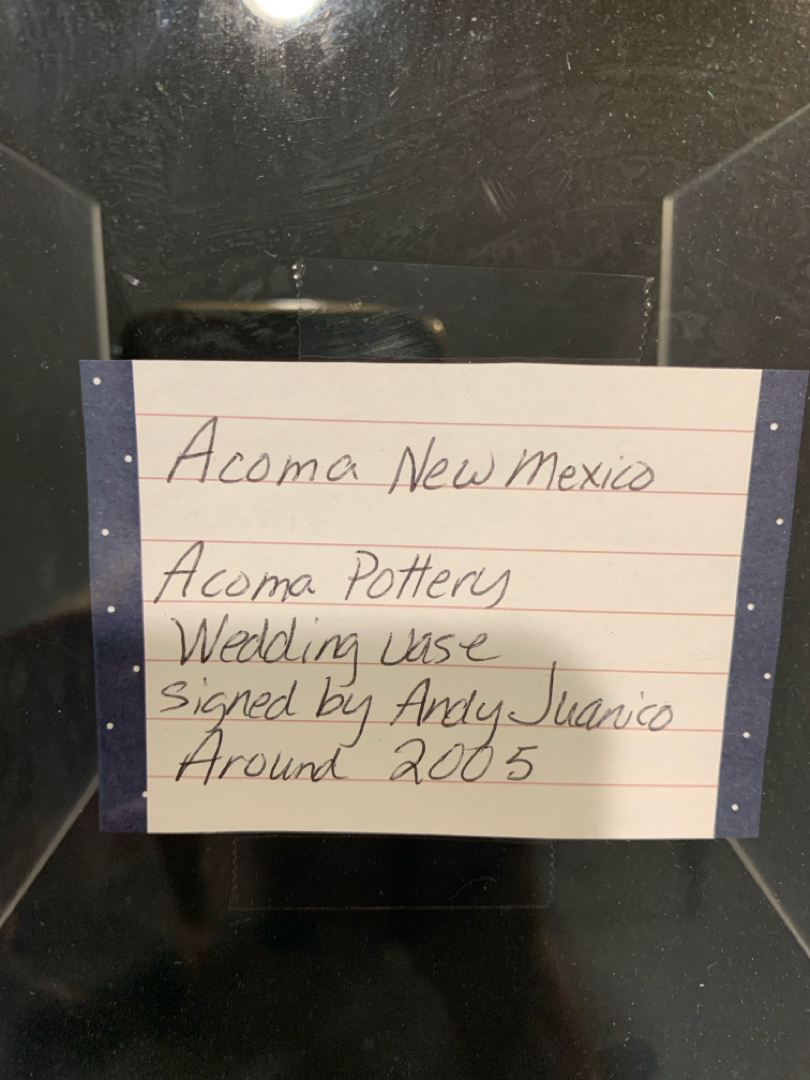 Acoma New Mexico
Acoma Pottery
Wedding Vase
Signed by Andy Juanico
Around 2005